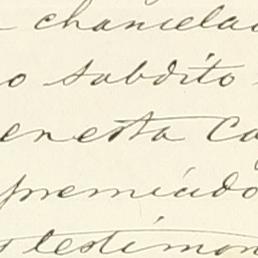 chancelad
o subdito
enesta Ca
premiado
testimon